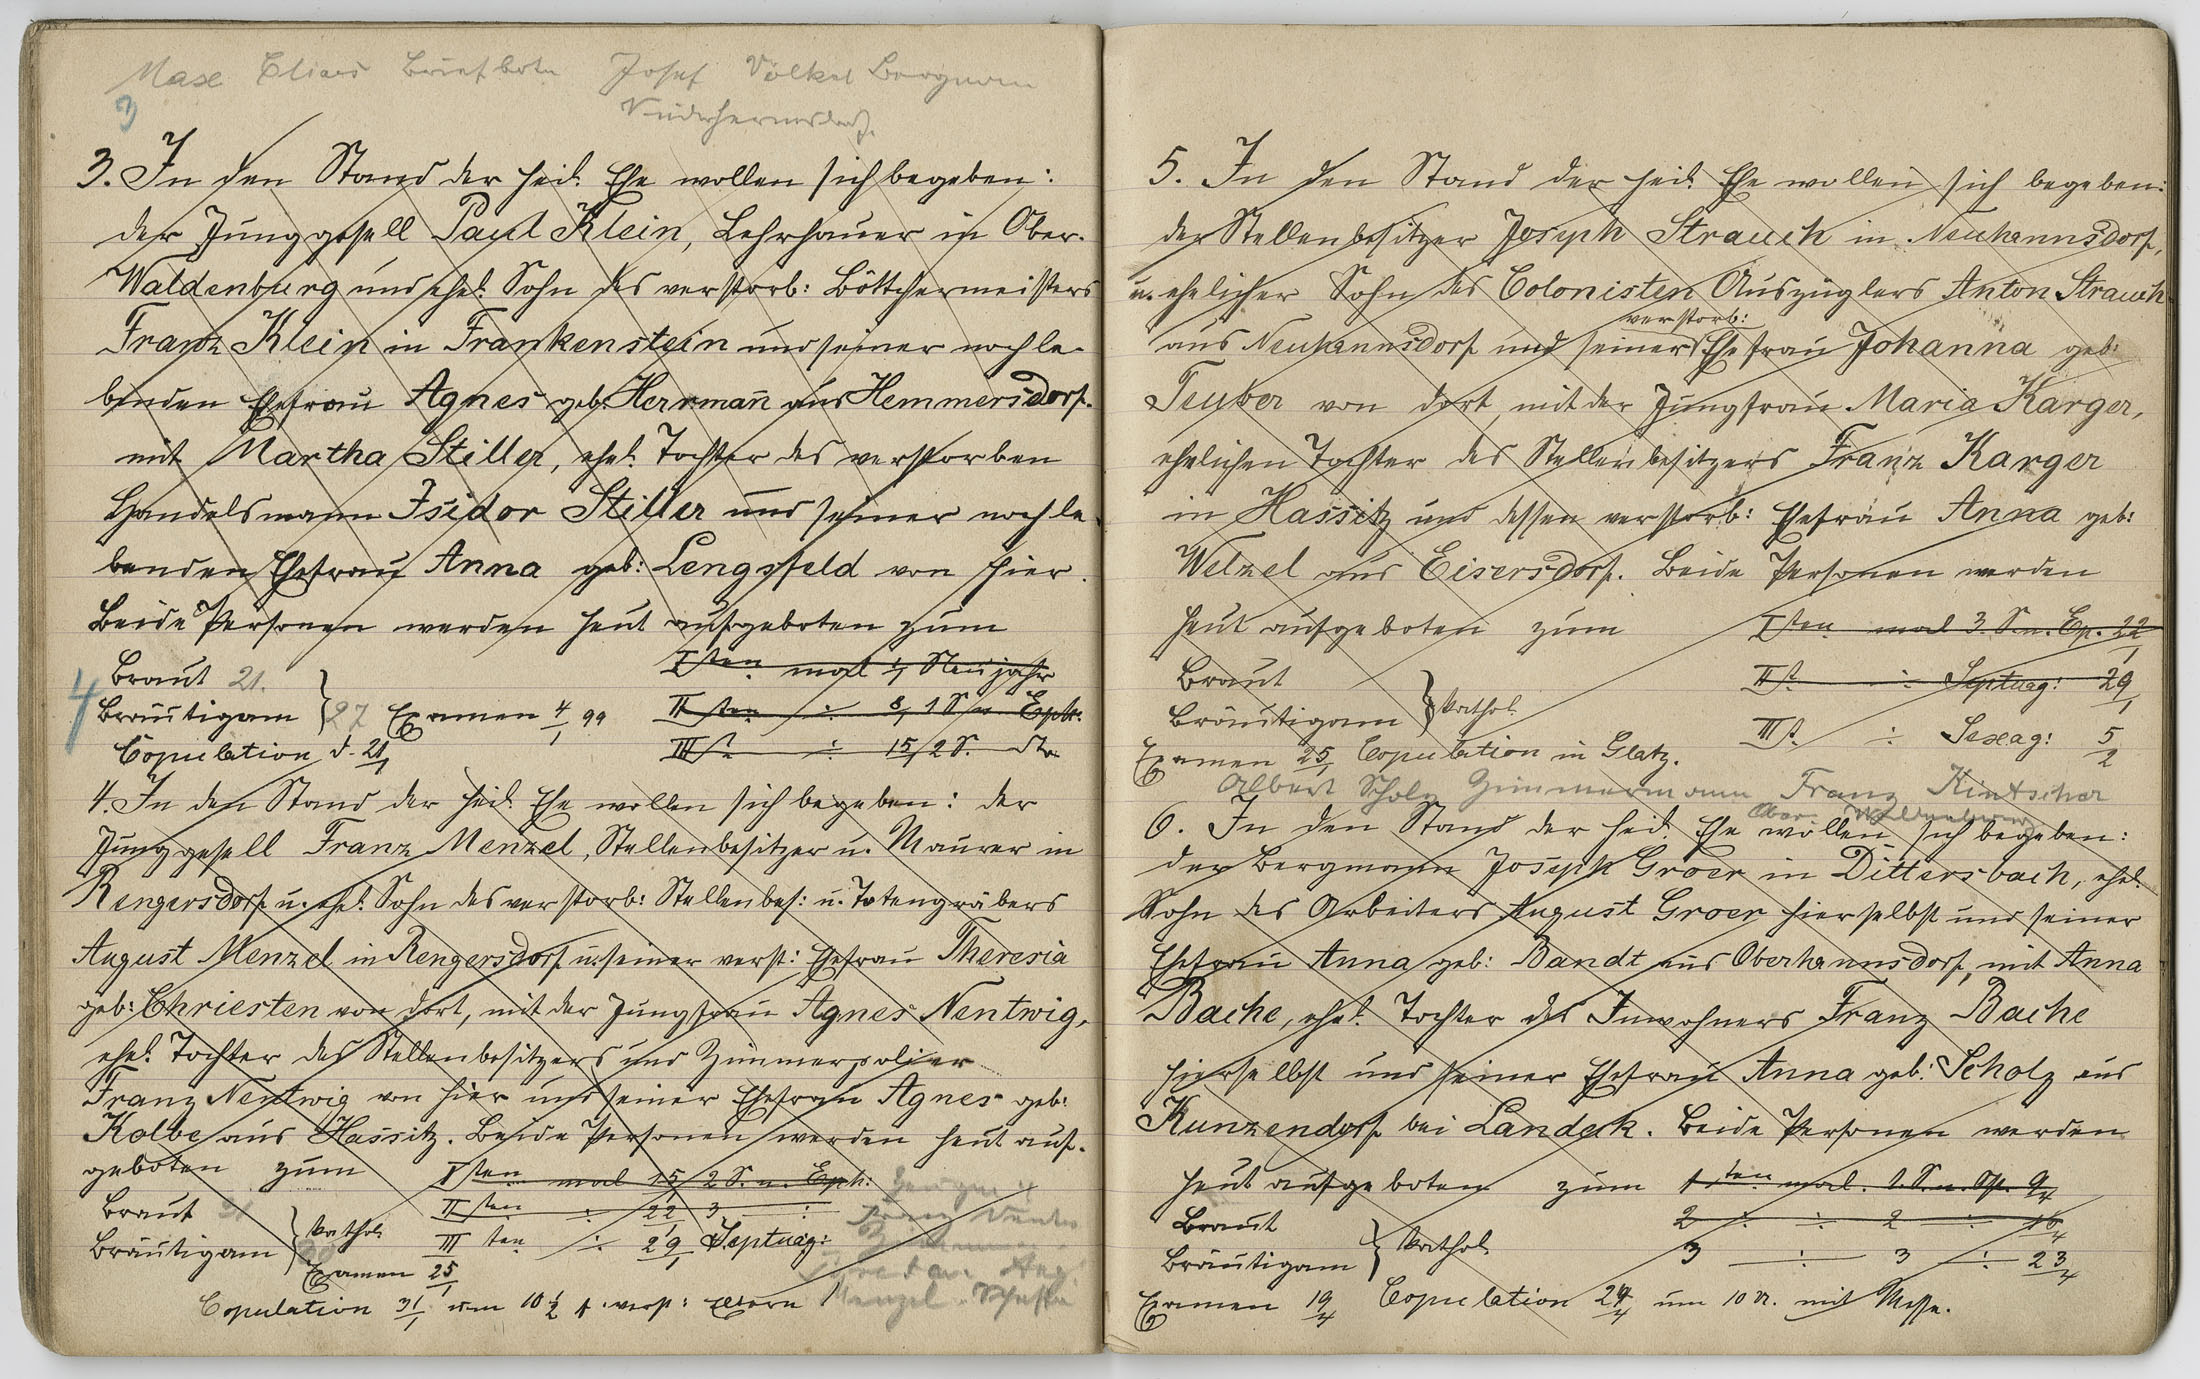 Josef Völkel Bergmann
Niederhermsdorf.
3
3. In den Stand der heil. Ehe wollen sich begeben:
der Junggesell Paul Klein, Lehrhauer in Ober-
Waldenburg und ehel. Sohn des verstorb: Böttchermeisters
Franz Klein in Frankenstein und seiner nochle-
benden Ehefrau Agnes geb: Herrmañ aus Hemmersdorf.
mit Martha Stiller, ehel. Tochter des verstorben
Handelsmann Isidor Stiller und seiner nochle-
benden Ehefrau Anna geb: Lengsfeld von hier.
Beide Personen werden heut aufgeboten zum
Isten mal 1/1 Neujahr
Braut 21.
4
Bräutigam 27 Examen 4/1 99
IIten 8/1 1 S. n. Eph.
Copulation d. 21/1
III 15/1 2 S.
4. In den Stand der heil. Ehe wollen sich begeben: der
Junggesell Franz Menzel, Stellenbesitzer u. Maurer in
Rengersdorf u. ehel. Sohn des verstorb: Stellenbes: u. Totengräbers
August Menzel in Rengersdorf u. seiner verst: Ehefrau Theresia
geb: Chriesten von dort, mit der Jungfrau Agnes Nentwig,
ehel. Tochter des Stellenbesitzers und Zimmerpolier
Franz Nentwig von hier und seiner Ehefrau Agnes geb:
Kolbe aus Hassitz. Beide Personen werden heut auf-
geboten zum Isten mal 15/1 2 S. n. Eph:
Braut
IIten 22/1 3
Bräutigam kathol.
III ten 29/1 Septuag:
Examen 25/1
Copulation 31/1 um 10 1/2 verst: Eltern
Menzel
5. In den Stand der heil. Ehe wollen sich begeben:
der Stellenbesitzer Joseph Strauch in Neuhannsdorf,
u. ehelicher Sohn des Colonisten Auszüglers Anton Strauch
verstorb:
aus Neuhannsdorf und seiner Ehefrau Johanna geb:
Teuber von dort, mit der Jungfrau Maria Karger,
ehelichen Tochter des Stellenbesitzers Franz Karger
in Hassitz und dessen verstorb: Ehefrau Anna geb:
Welzel aus Eisersdorf. Beide Personen werden
heut aufgeboten zum Isten mal 3. S. n. Ep. 22/1
Braut
IIt. Septuag: 29/1
Bräutigam kathol.
IIIt. Sexag: 5/2
Examen 25/1 Copulation in Glatz.
Albert Scholz Zimmermann Franz Kintscher
Ober Waldenburg
6. In den Stand der heil. Ehe wollen sich begeben:
der Bergmann Joseph Groer in Dittersbach, ehel.
Sohn des Arbeiters August Groer hierselbst und seiner
Ehefrau Anna geb: Bandt aus Oberhannsdorf, mit Anna
Bache, ehel. Tochter des Inwohners Franz Bache
hierselbst und seiner Ehefrau Anna geb: Scholz aus
Kunzendorf bei Landeck. Beide Personen werden
heut aufgeboten zum 1ten mal. 1. S. n. Ost. 9/4
Braut
2 2 16/4
Bräutigam kathol.
3 3 23/4
Examen 19/4 Copulation 24/4 um 10 U. mit Messe.